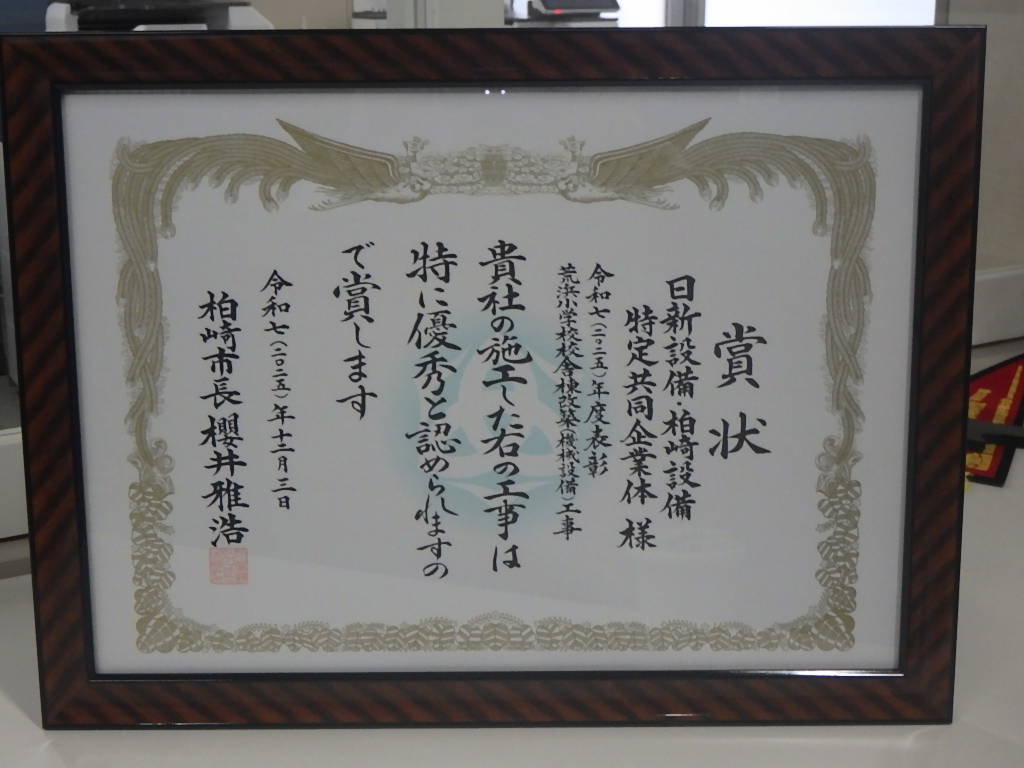 賞状
日新設備・柏崎設備
特定共同企業体 様
令和七(二〇二五)年度表彰
荒浜小学校校舎棟改築(機械設備)工事
貴社の施工した右の工事は
特に優秀と認められますの
で賞します
令和七(二〇二五)年十二月三日
柏崎市長 櫻井雅浩